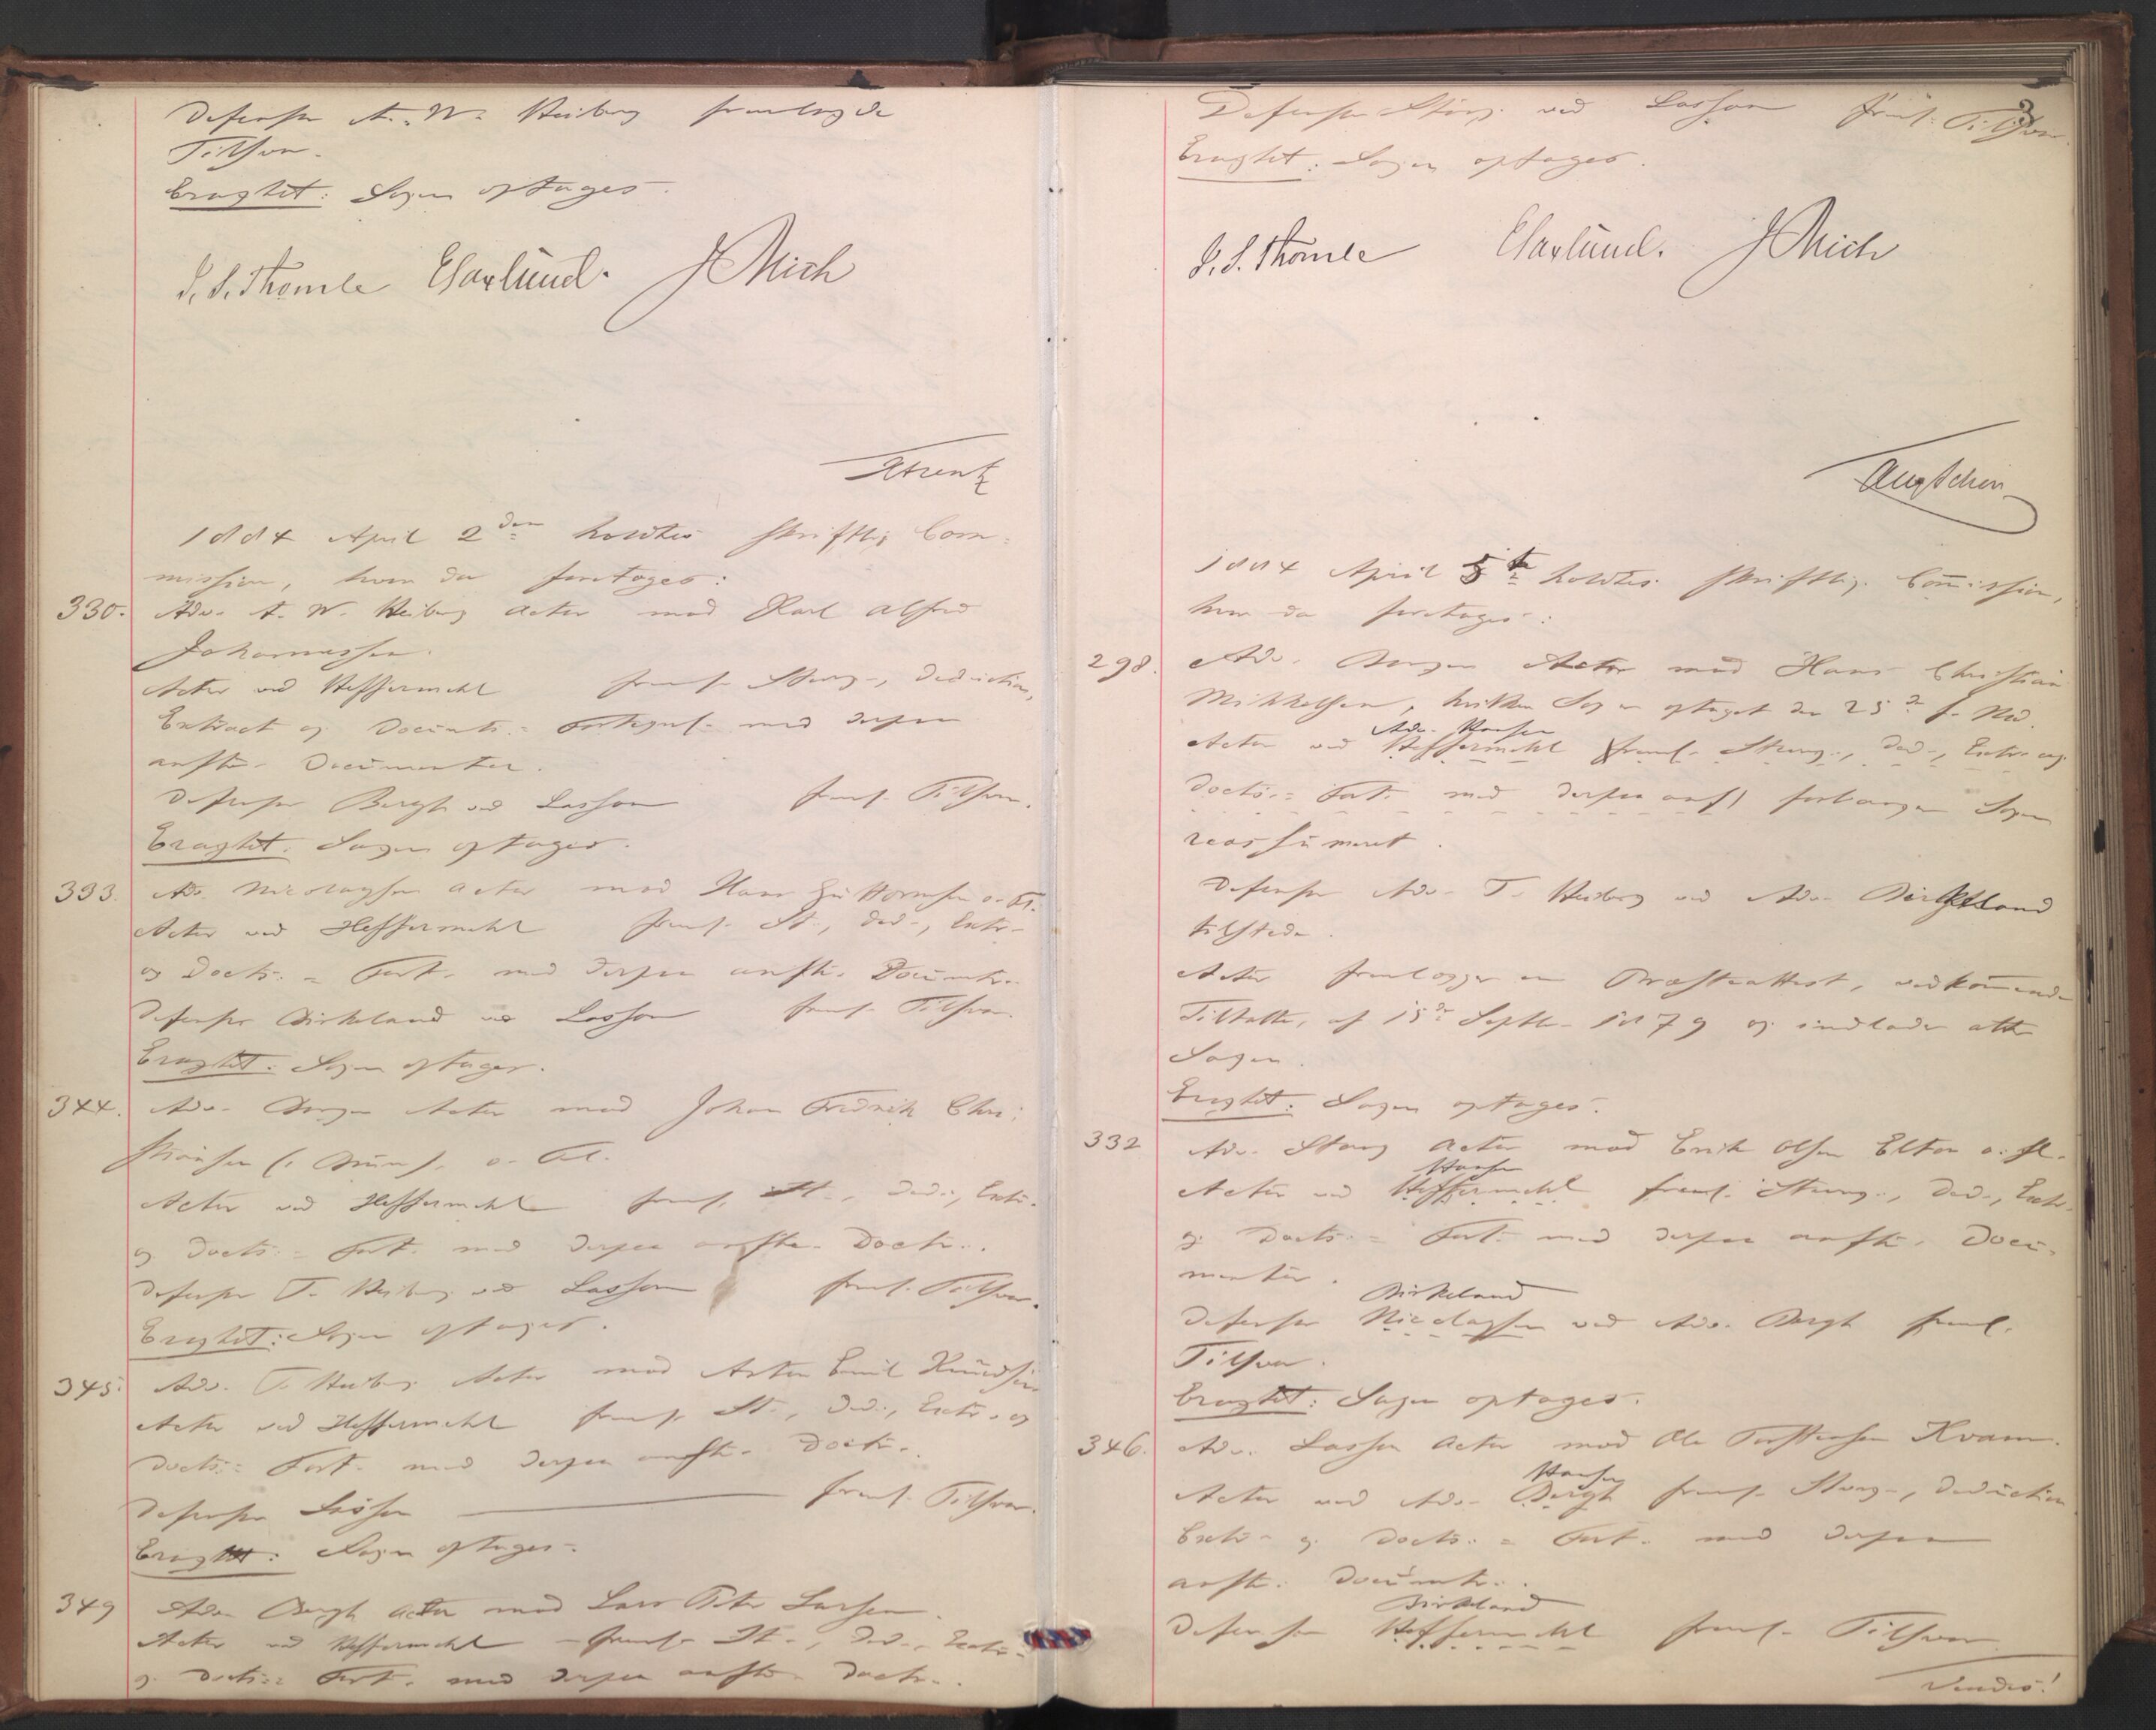 Defensor A. W. Heiberg fremlagde
Tilsvar.
Eragtet: Sagen optages.
S. S. Thomle
J Mich
1884 April 2den holdtes skriftlig Com-
mission, hvor da foretages:
330. Adv. A. W. Heiberg Actor mod Karl Alfred
Johannessen.
Actor ved Heffermehl freml. Stevng, Deduction,
Extract og Documts.= Fortegnel. med derpaa
anførte Documenter.
Defensor Bergh ved Lasson freml. Tilsvar.
Eragtet: Sagen optages.
393. Adv. Nicolaysen Actor mod Hans
Actor ved Heffermehl freml. St., Ded., Extr.
og Docts.= Fort. med derpaa anførte Documtr.
Defensor Birkeland ved Lasson freml. Tilsvar.
Eragtet: Sagen optages.
344. Adv. Actor mod Johan Fredrik Chri-
stiansen
Actor ved Heffermehl freml. St., Ded., Extr.
og Docts.= Fort. med derpaa anførte Doctr.
Defensor T. Heiberg ved Lasson freml. Tilsvar.
Eragtet: Sagen optages.
345. Adv. T. Heiberg Actor mod Anton Emil Knudsen
Actor ved Heffermehl freml. St., Ded., Extr. og
Docts.= Fort. med derpaa anførte Doctr.
Defensor Lasson freml. Tilsvar.
Eragtet: Sagen optages.
349 Adv. Bergh Actor mod Lars Peter Larsen.
Actor ved Heffermehl freml. St., Ded., Extr.
og Docts.= Fort. med derpaa anførte Doctr.
3
Defensor Stang ved Lasson freml. Tilsvar.
Eragtet: Sagen optages.
S. S. Thomle
J Mich
1884 April 5te holdtes skriftlig Commission,
hvor da foretages:
298. Adv. Actor mod Hans Christian
Mikkelsen, hvilken Sag er optaget den 25de f. Md.
Adv. Hansen
Actor ved Heffermehl freml. Stevng., Ded., Extr. og
Docts.= Fort. med derpaa anf. forlanger Sagen
reassumeret.
Defensor Adv. T. Heiberg ved Adv. Birkeland
tilstede.
Actor fremlægger en Præsteattest, vedkommende
Tiltalte, af 15de Septbr. 1879 og indlader atter
Sagen.
Eragtet: Sagen optages.
332 Adv. Stang Actor mod Erik Olsen Elton o. fl.
Hansen
Actor ved Heffermehl freml. Stevng., Ded., Extr.
og Docts.= Fort. med derpaa anførte Docu-
menter.
Birkeland
Defensor Nicolaysen ved Adv. Bergh freml.
Tilsvar.
Eragtet: Sagen optages.
346. Adv. Lasson Actor mod Ole Torstensen Kvam.
Hansen
Actor ved Adv. Bergh freml. Stevng., Deduction
Extr. og Docts.= Fort. med derpaa
anførte Documtr.
Birkeland
Defensor Heffermehl freml. Tilsvar.
Vendes!